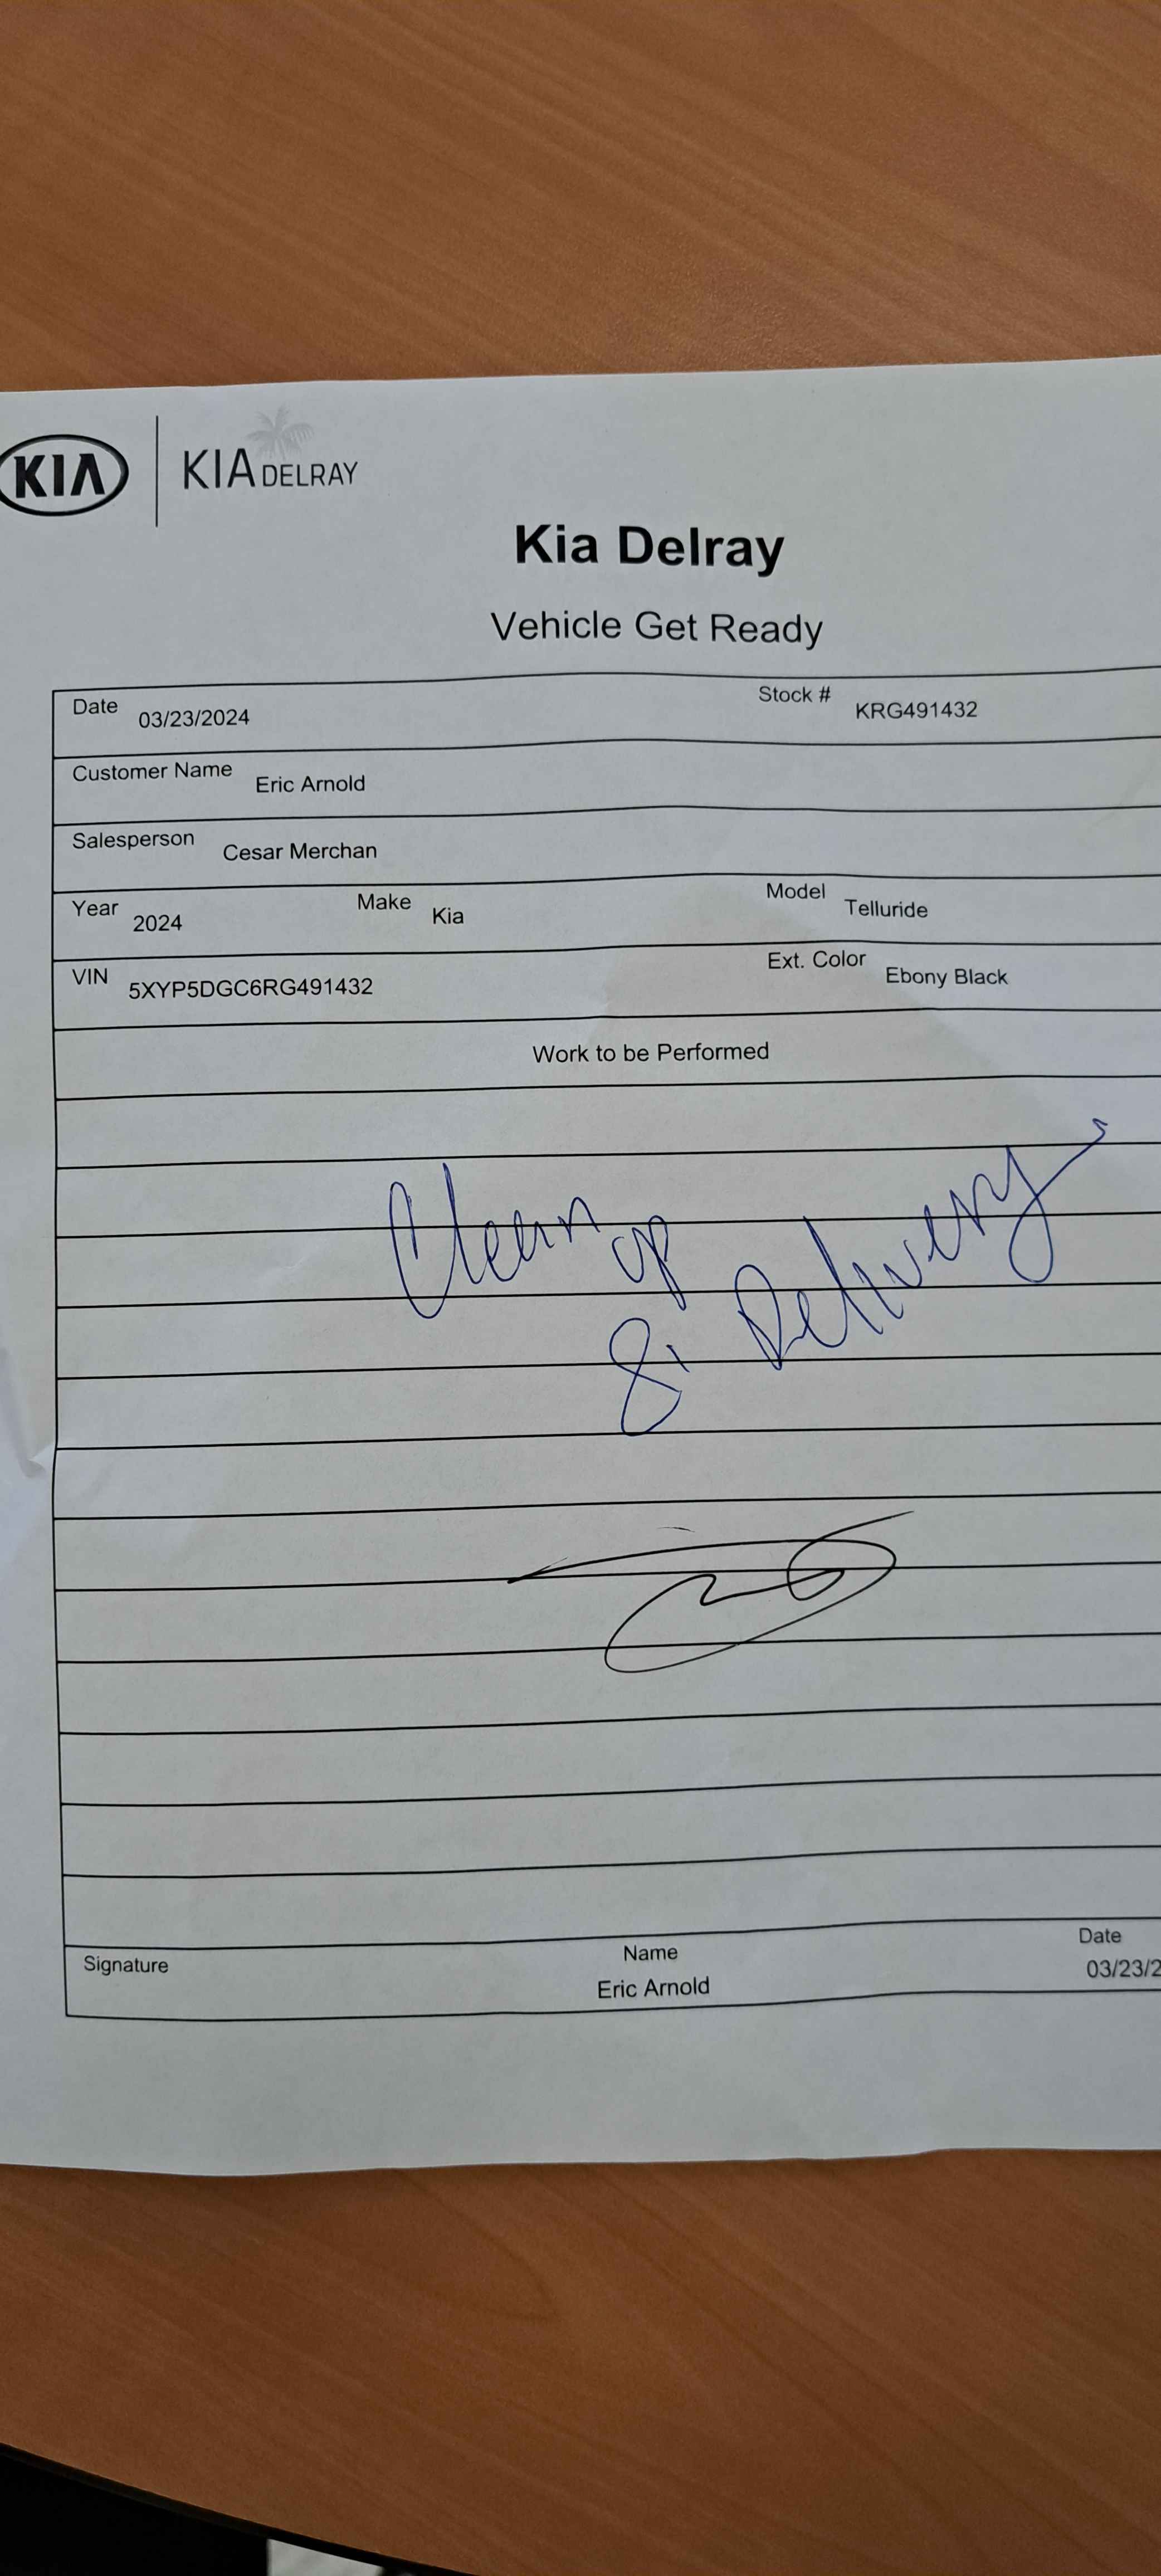 KIA KIA DELRAY
Kia Delray
Vehicle Get Ready
Date 03/23/2024 Stock # KRG491432
Customer Name Eric Arnold
Salesperson Cesar Merchan
Year 2024 Make Kia Model Telluride
VIN 5XYP5DGC6RG491432 Ext. Color Ebony Black
Work to be Performed
Clean up
& Delivery
Signature Name Date
Eric Arnold 03/23/2